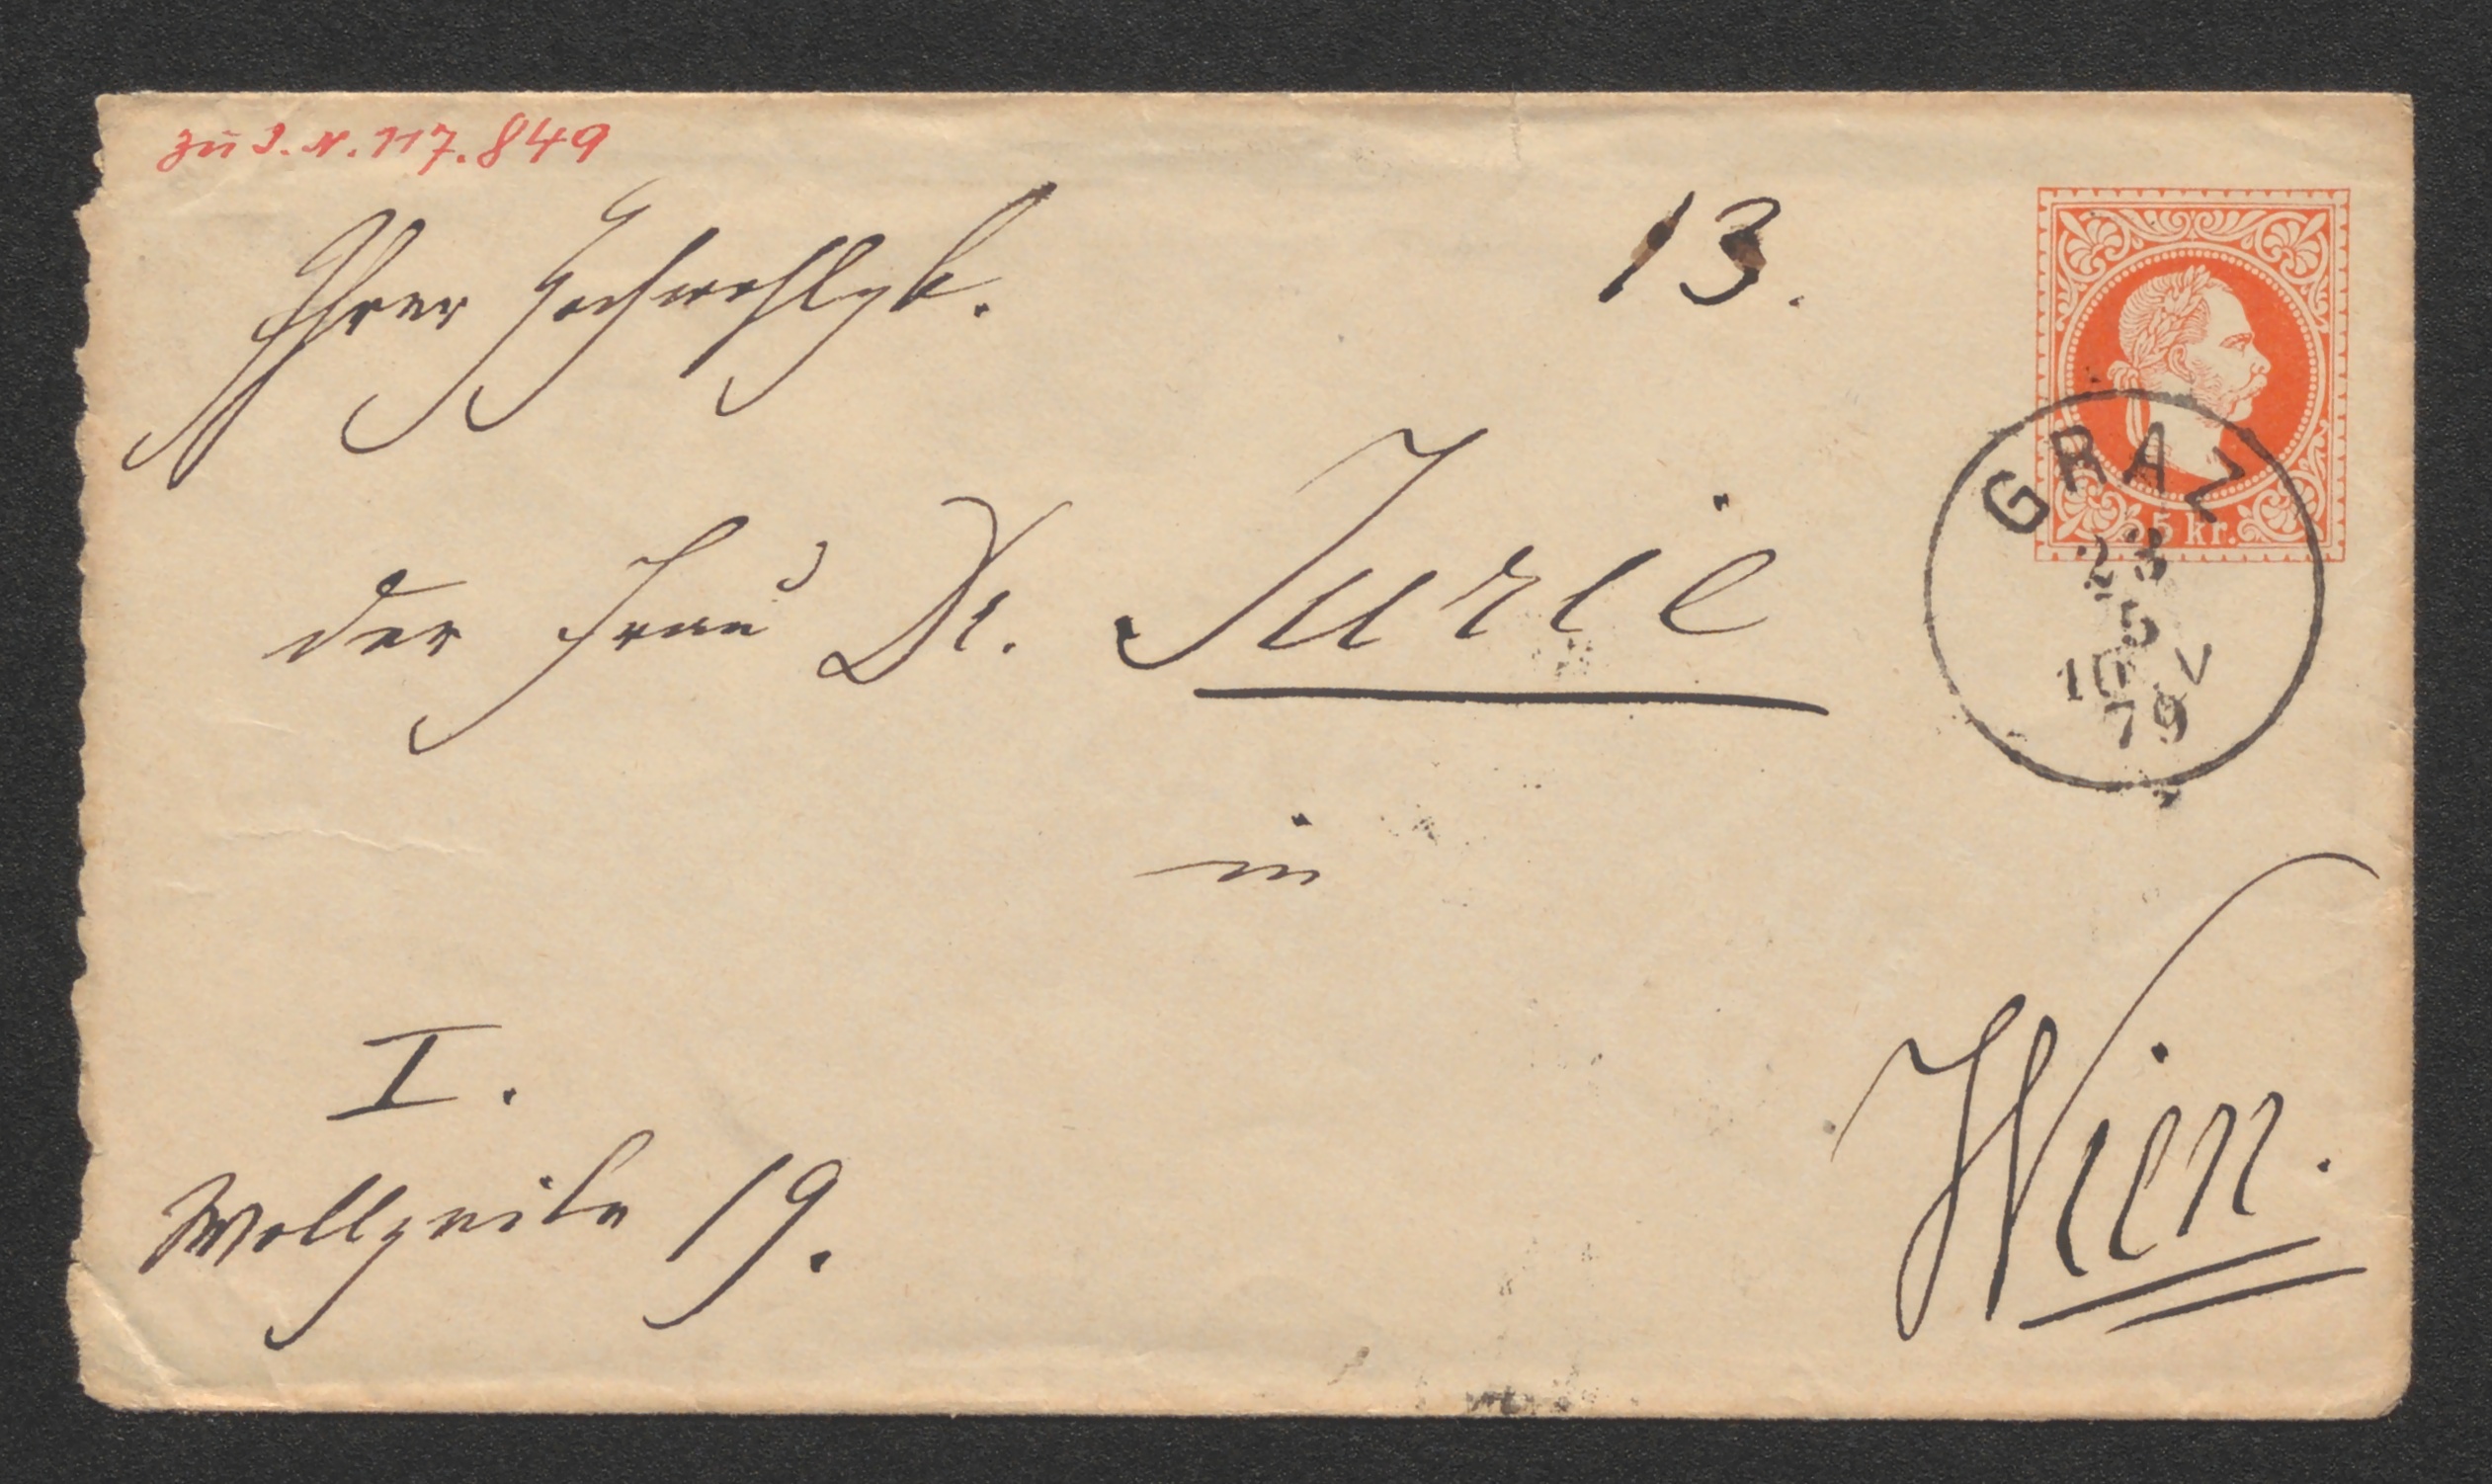 zu I.N. 117.849
13.
Ihrer Hochwohlgb.
der Frau Dr. Jurie
in
Wien.
I.
Wollzeile 19.
5 kr.
GRAZ
23
5
79